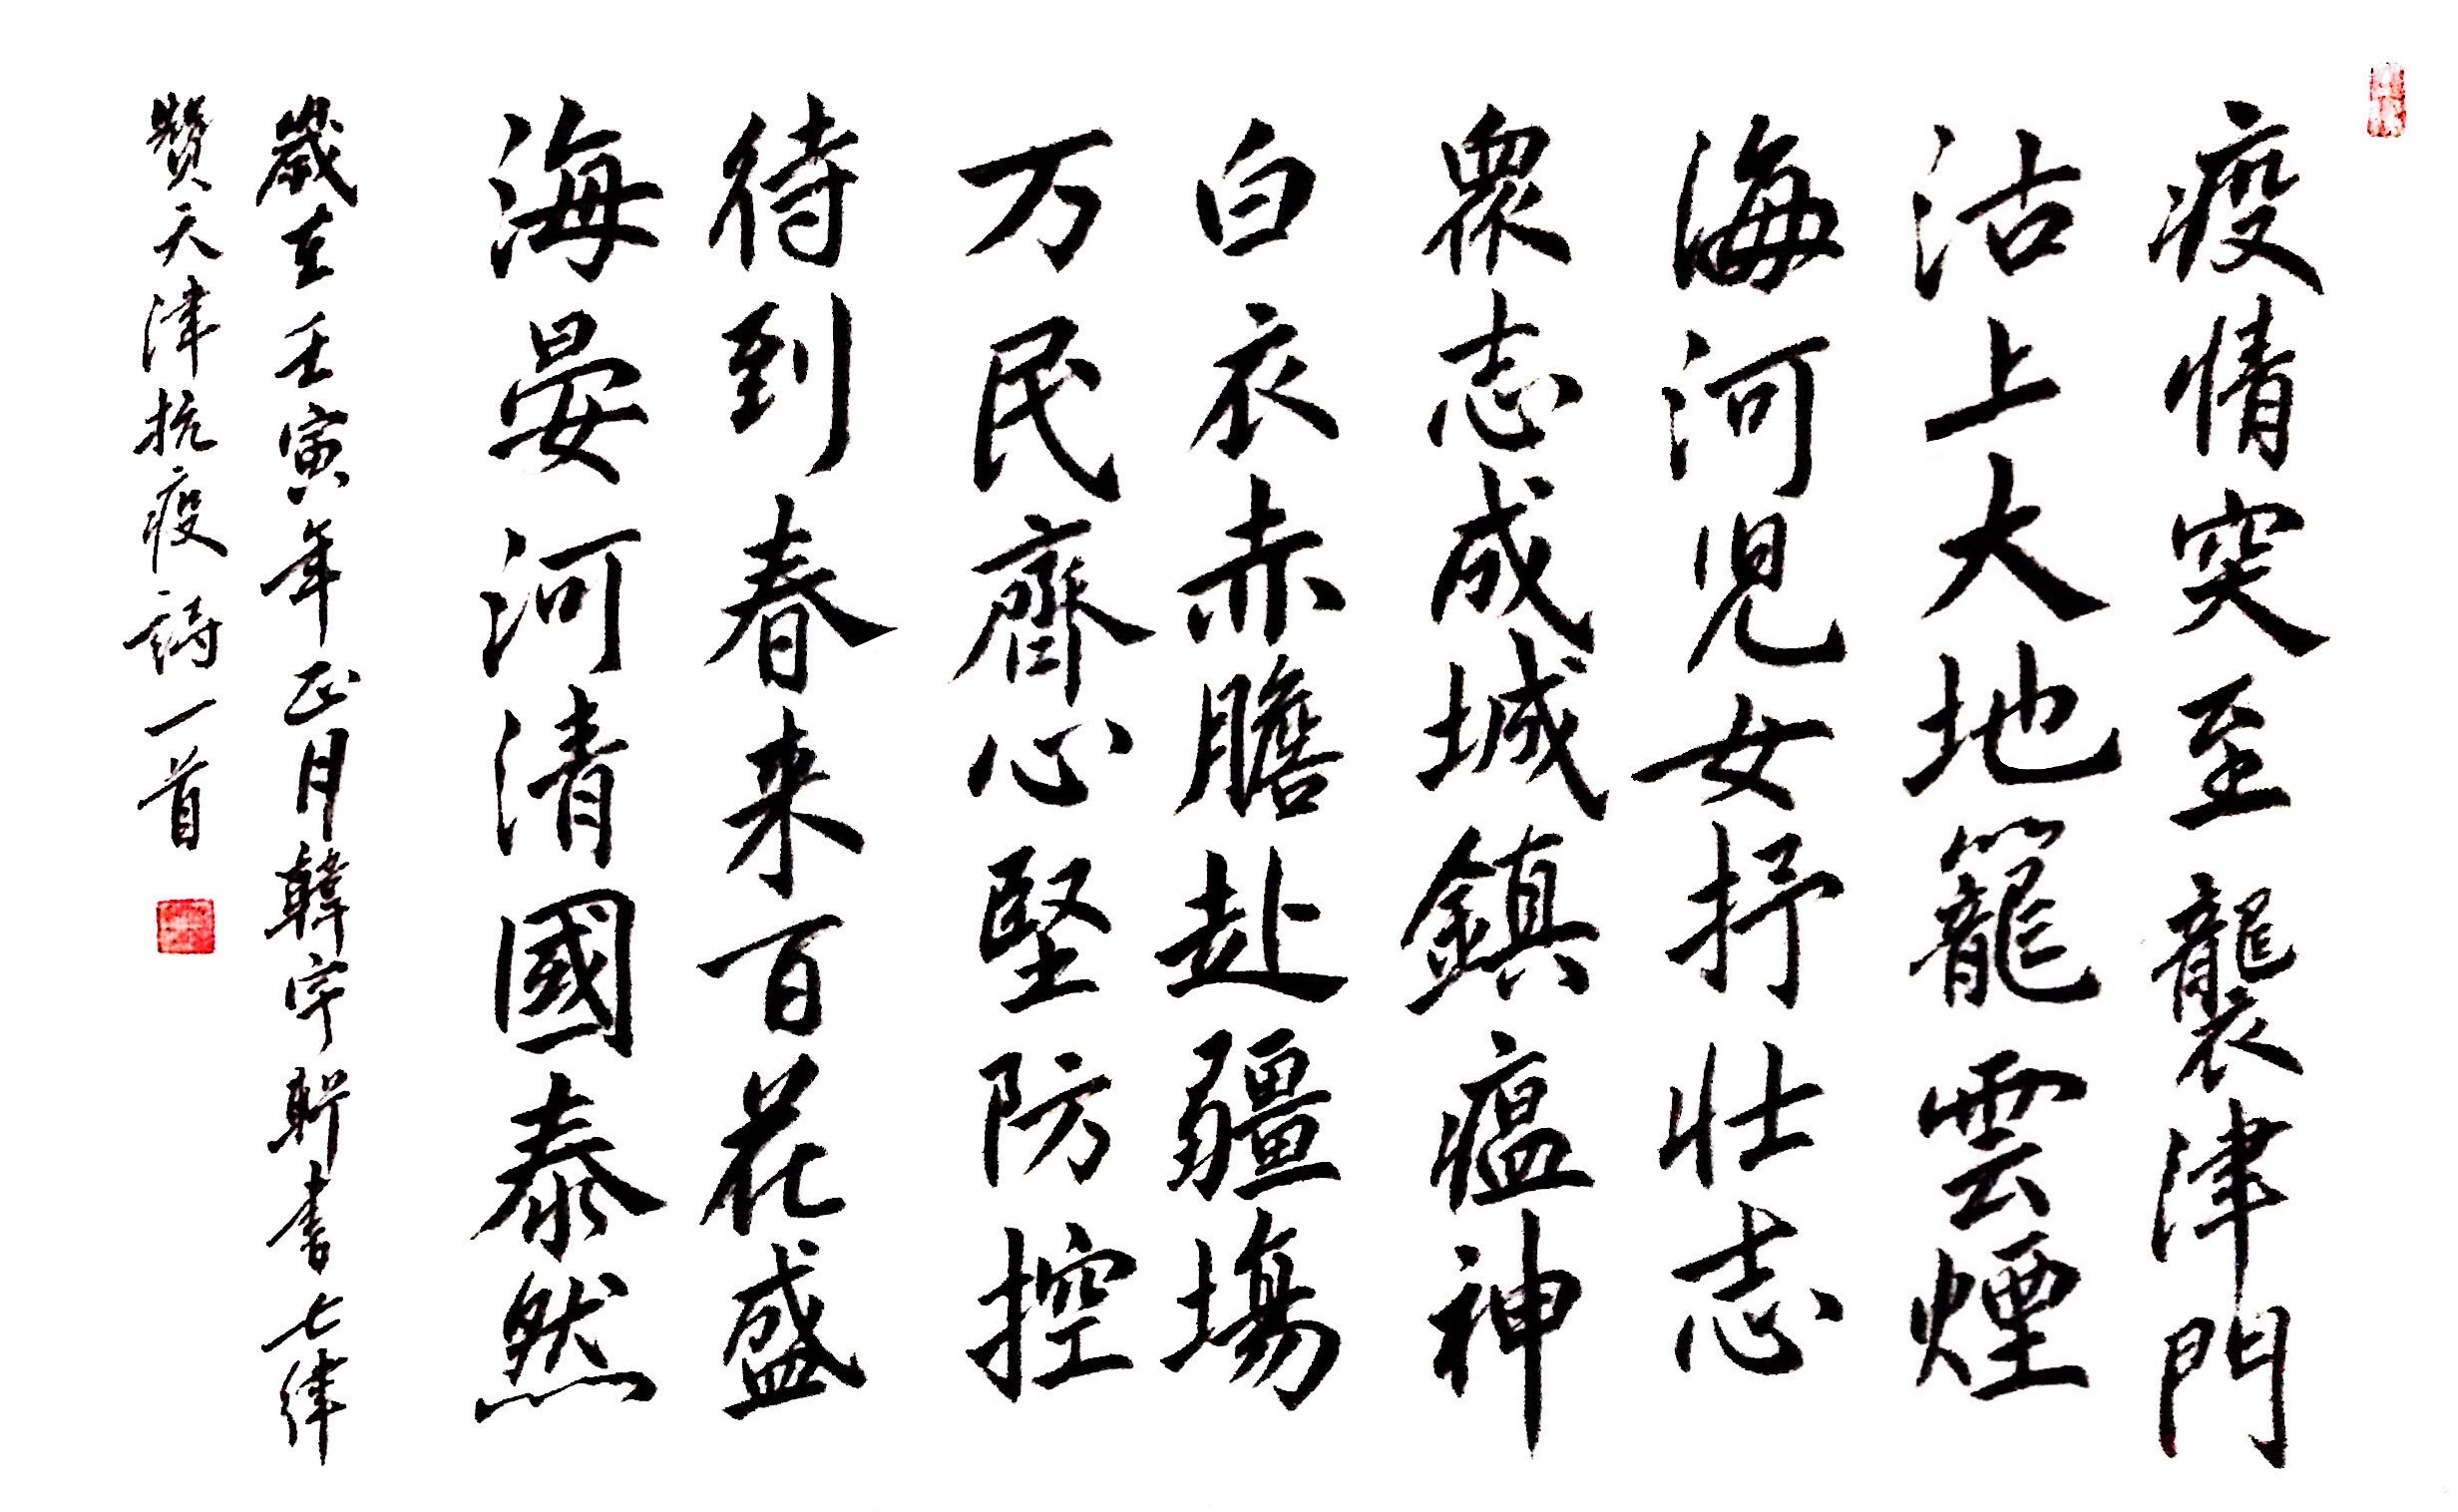 疫情突至襲津門
沽上大地籠雲煙
海河児女抒壮志
眾志成城鎮瘟神
白衣赤膽赴疆場
万民齊心堅防控
待到春来百花盛
海晏河清國泰然
歲在壬寅年正月韓宇斯書七律
贊天津抗疫詩一首